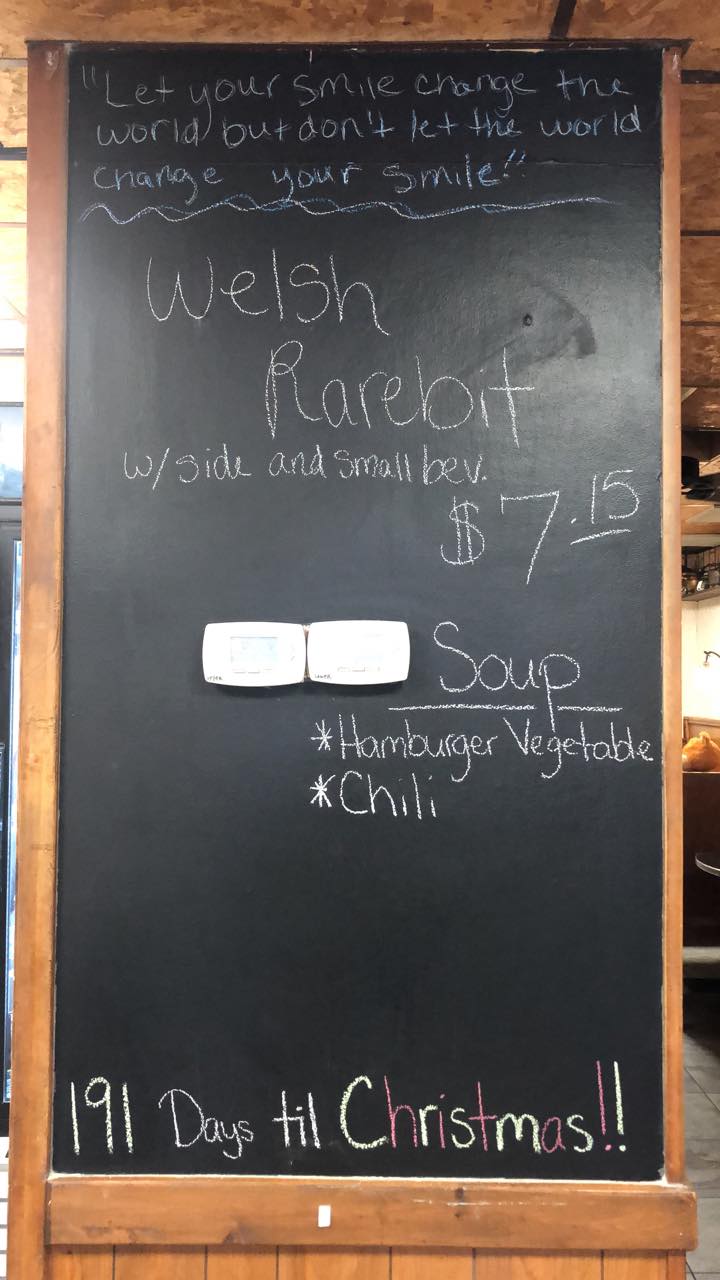 "Let your smile change the
world but don't let the world
change your smile!"
Welsh
Rarebit
w/ side and small bev.
$7.15
Soup
*Hamburger Vegetable
*Chili
191 Days til Christmas!!